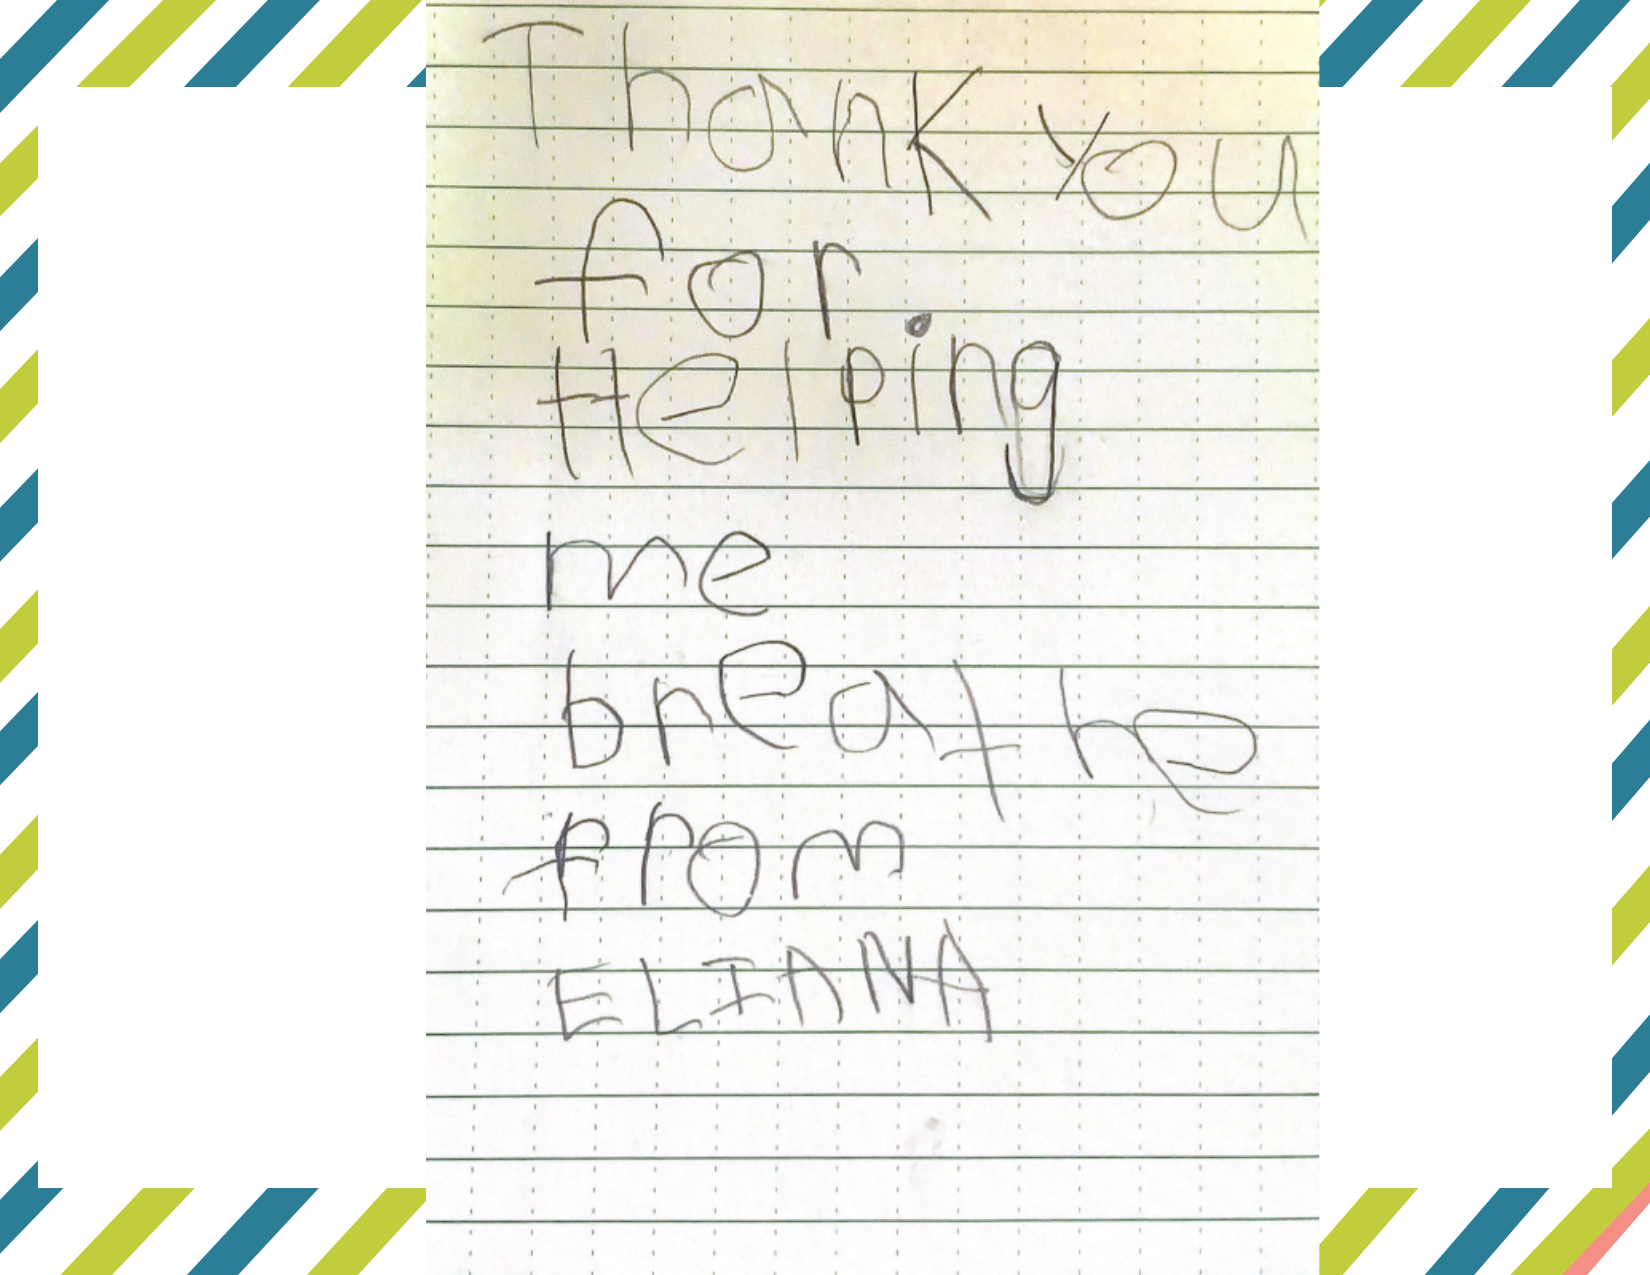 Thank you
for
Helping
me
breathe
from
ELIANA